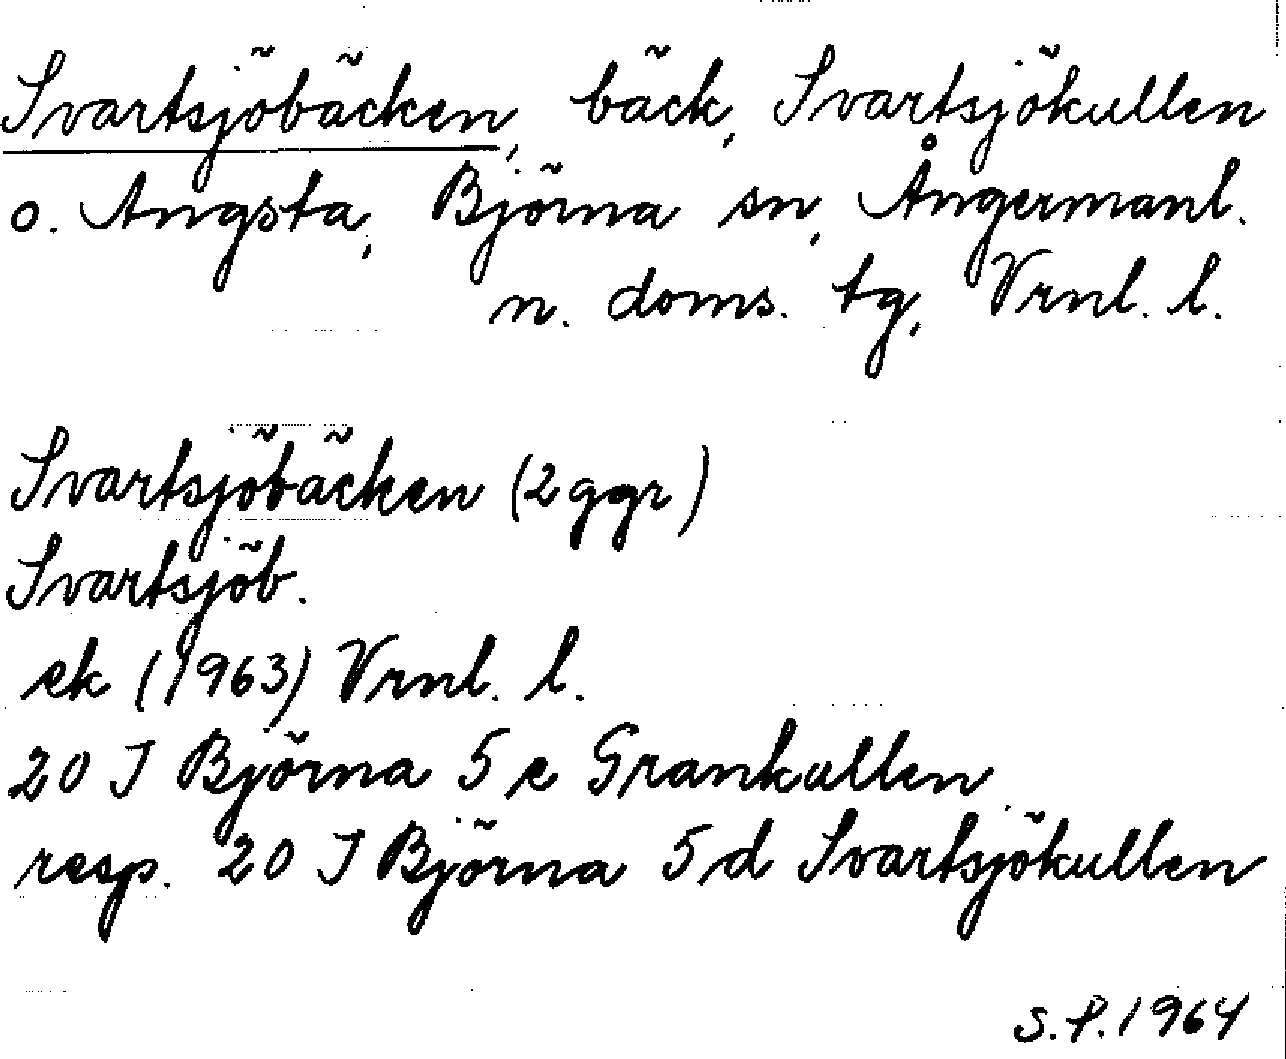 Svartsjöbäcken, bäck, Svartsjökullen
o. Angsta, Björna sn, Ångermanl.
n. doms. tg, Vrnl. l.
Svartsjöbäcken (2 ggr)
Svartsjöb.
ek (1963) Vrnl. l.
20 J Björna 5 e Grankullen
resp. 20 J Björna 5 d Svartsjökullen
S.P. 1964